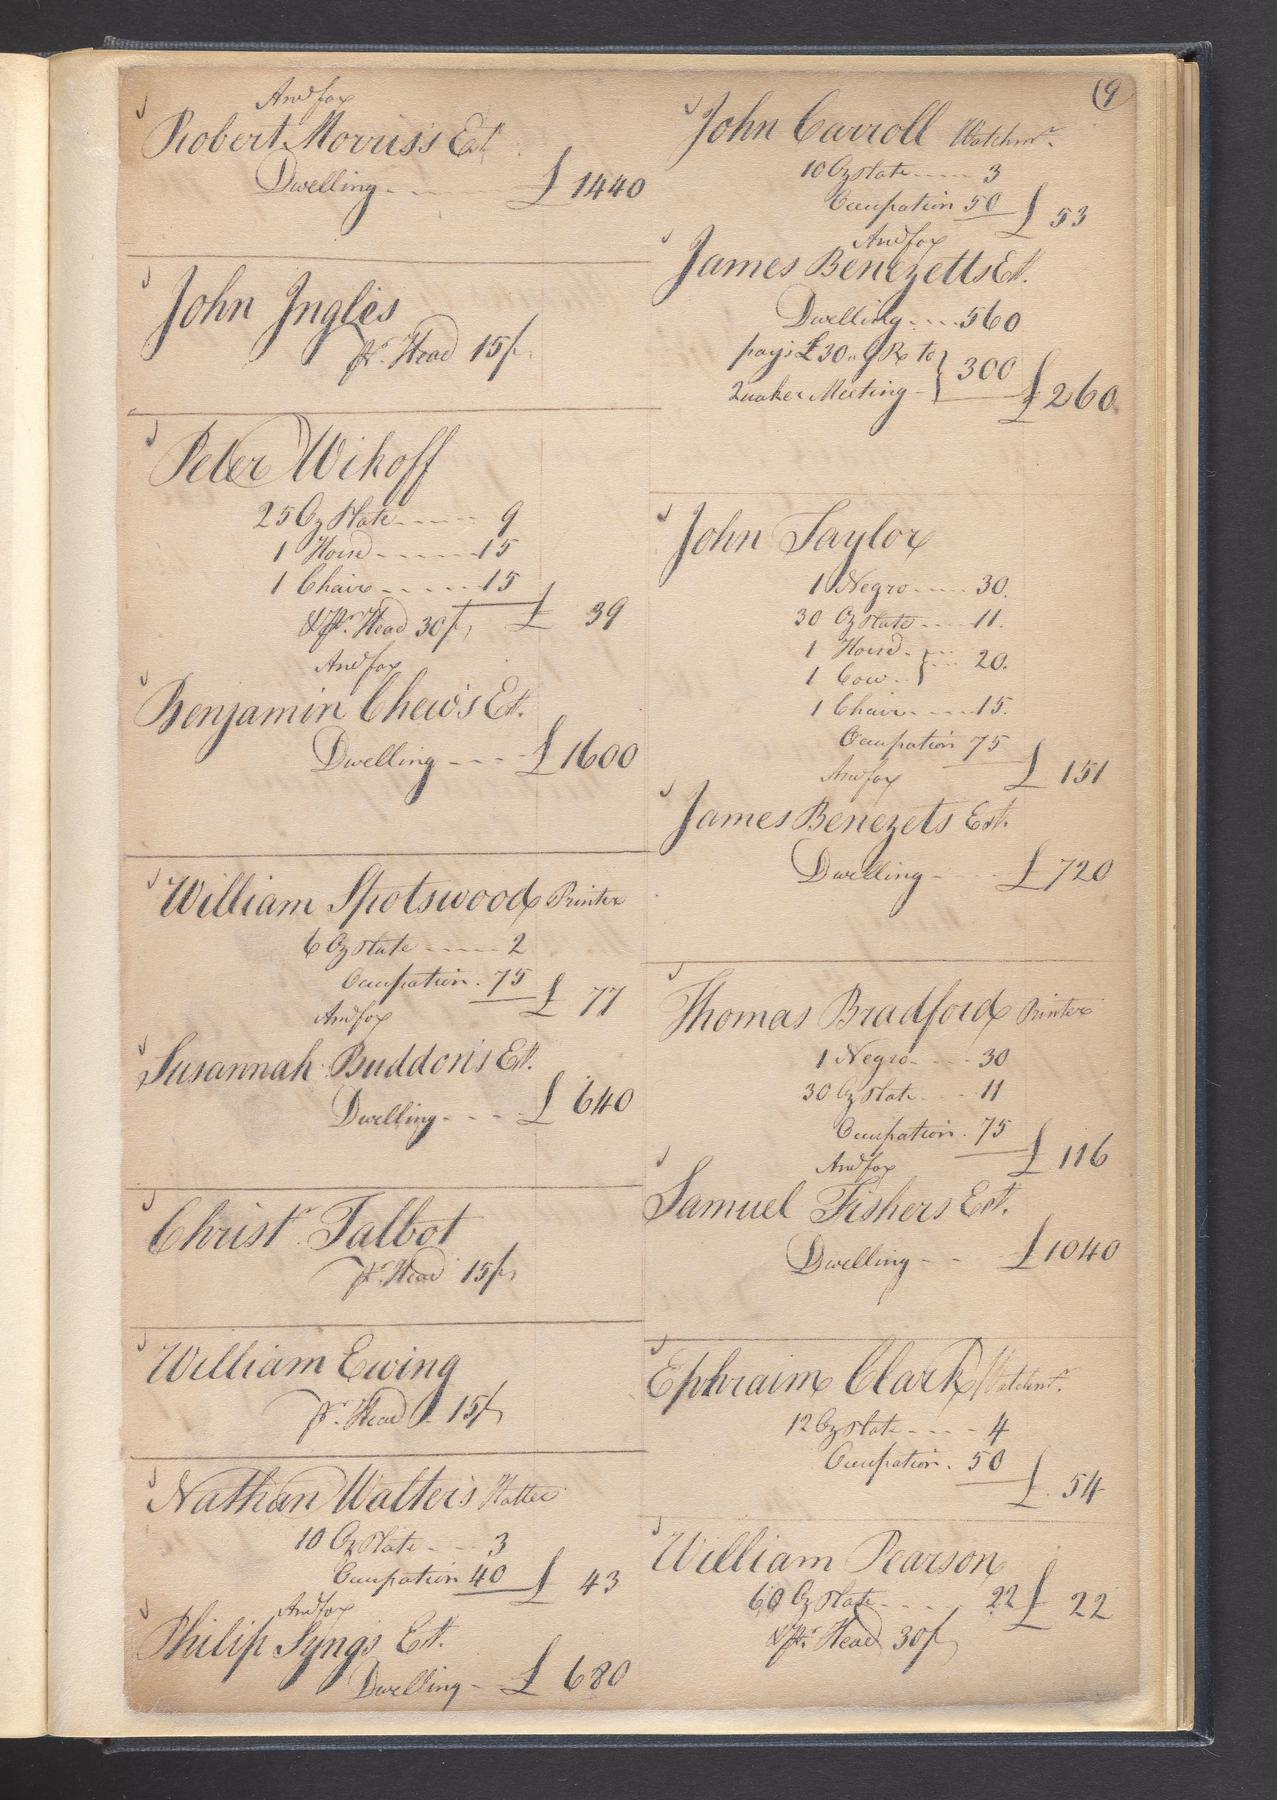 (9
And for
Robert Morris's Est.
Dwelling - - - £ 1440
John Ingles
pr. Head 15/
Peter Wikoff
25 Oz Plate - - - - 9
1 Horse - - - - 15
1 Chair - - - - 15
& pr. Head 30/, £ 39
And for
Benjamin Chew's Est.
Dwelling - - - £1600
William Spotswood Printer
6 Oz Plate - - - - 2
Occupation . 75 £ 77
And for
Susannah Buddon's Est.
Dwelling - - - £ 640
Christr. Talbot
pr. Head 15/,
William Ewing
pr. Head - 15/,
Nathan Walters Hatter
10 Oz Plate - - - 3
Occupation 40 £ 43
And for
Philip Syngs Est.
Dwelling - £ 680
John Carroll Watchmr.
10 Oz Plate - - - - 3
Occupation 50 £ 53
And for
James Benezetts Est.
Dwelling - - - 560
pays £30 G Rt to } 300
Quaker Meeting - £260
John Taylor
1 Negro - - - - 30.
30 Oz Plate - - - 11.
1 Horse - } - - 20.
1 Cow - -
1 Chair - - - - 15.
Occupation 75
And for £ 151
James Benezets Est.
Dwelling - - - £720
Thomas Bradford Printer
1 Negro - - - 30
30 Oz Plate - - - 11
Occupation . 75
And for £ 116
Samuel Fishers Est.
Dwelling - - £1040
Ephraim Clark Watchmr.
12 Oz Plate - - - - 4
Occupation . 50 £ 54
William Pearson
60 Oz Plate - - - - 22 £ 22
& pr. Head 30/,